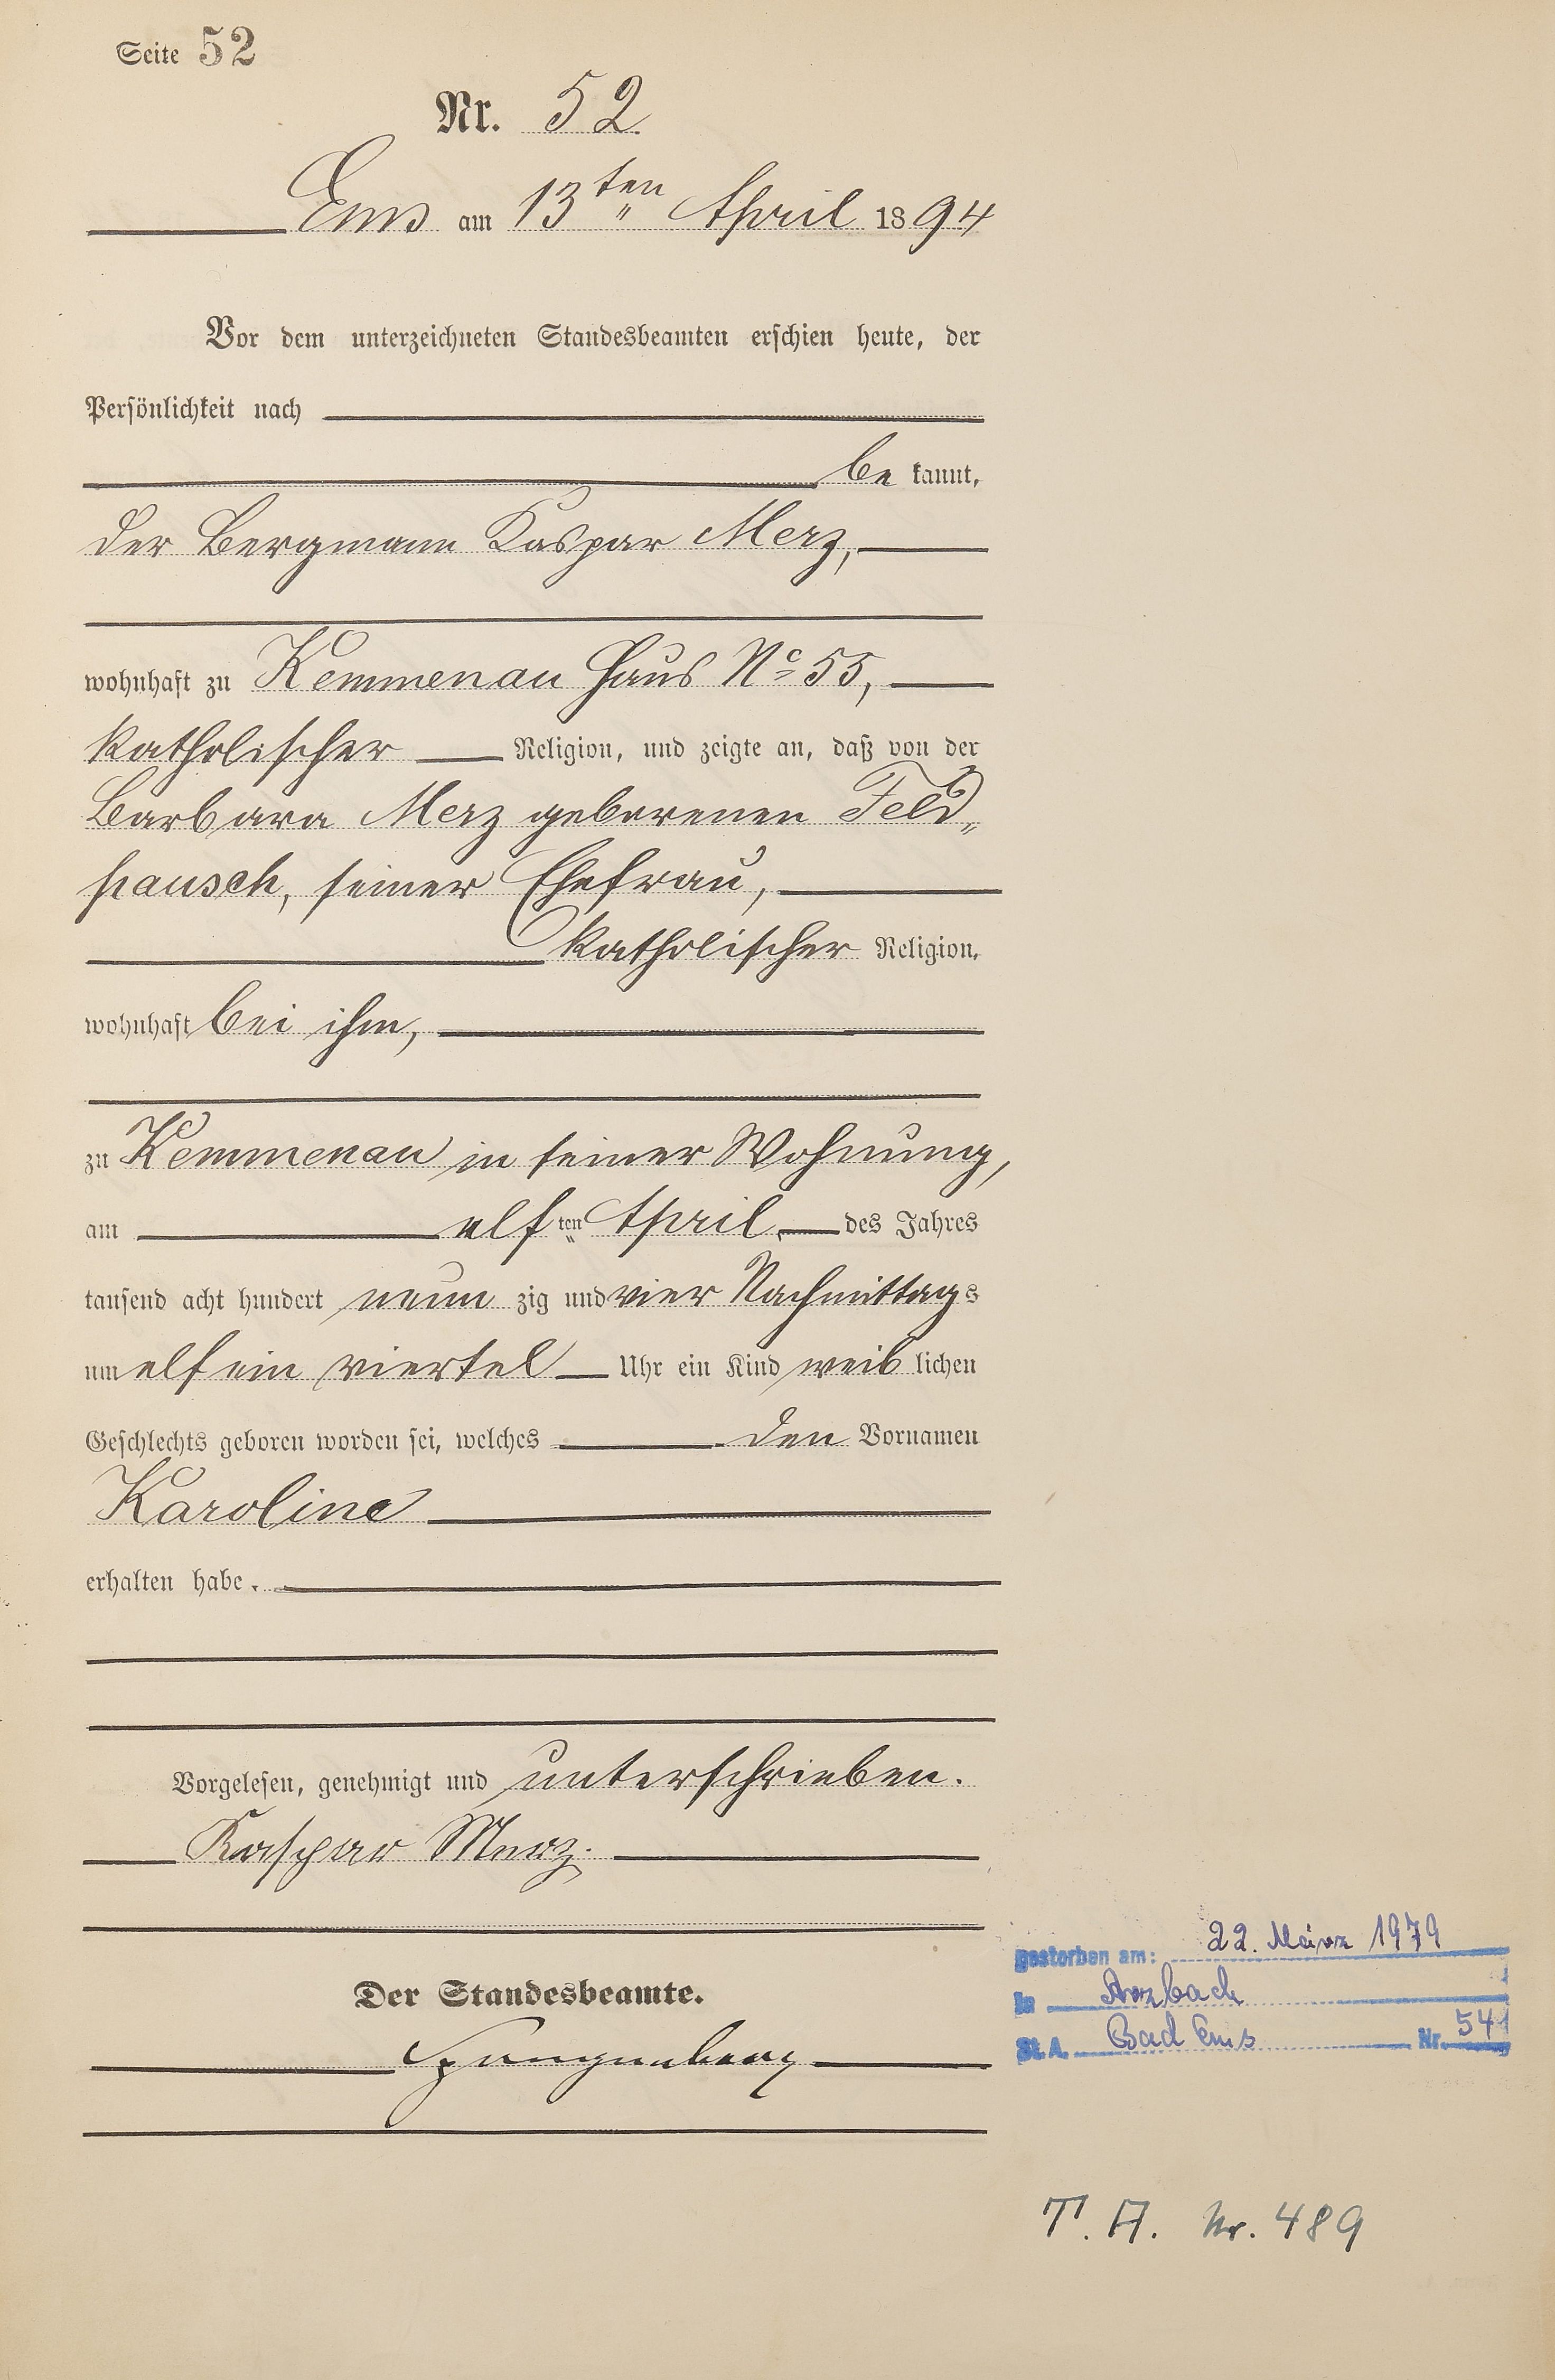 Seite 52
Nr. 52.
Ems am 13ten April 1894
Vor dem unterzeichneten Standesbeamten erschien heute, der
Persönlichkeit nach
be kannt,
der Bergmann Kaspar Merz,
wohnhaft zu Kemmenau Haus No 55,
katholischer Religion, und zeigte an, daß von der
Barbara Merz geborenen Feld„
hausch, seiner Ehefrau,
katholischer Religion,
wohnhaft bei ihm,
zu Kemmenau in seiner Wohnung,
am elf ten April, des Jahres
tausend acht hundert neun zig und vier Nachmittags
um elf ein viertel Uhr ein Kind weib lichen
Geschlechts geboren worden sei, welches den Vornamen
Karoline
erhalten habe.
Vorgelesen, genehmigt und unterschrieben.
Kaspar Merz.
Der Standesbeamte.
Spangenberg
gestorben am: 22. März 1979
in Arzbach
St.A. Bad Ems Nr. 541
T. A. Nr. 489